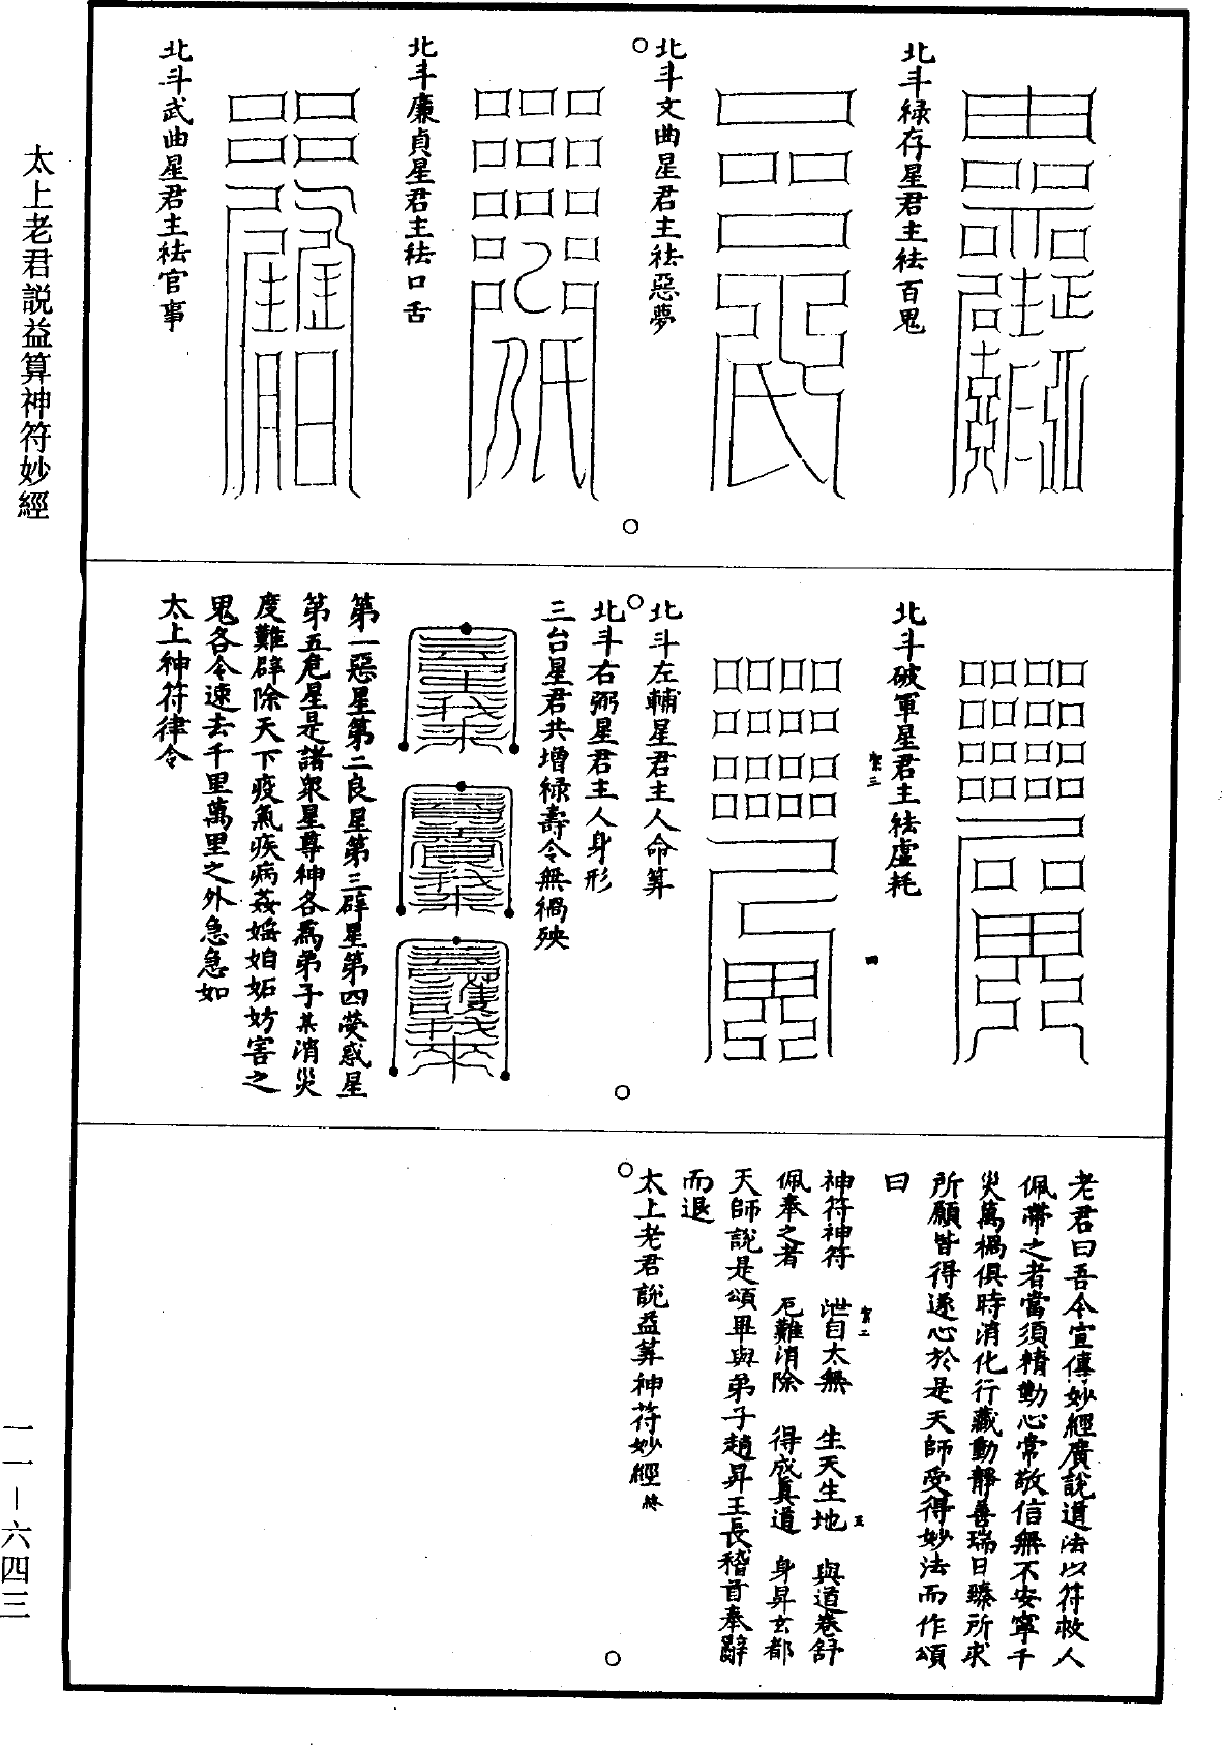 北斗祿存星君主祛百鬼
北斗文曲星君主祛惡夢
北斗廉貞星君主祛口舌
北斗武曲星君主祛官事
北斗破軍星君主祛虛耗
北斗左輔星君主人命算
北斗右弼星君主人身形
三台星君共增祿壽令無禍殃
第一惡星第二良星第三辟星第四熒惑星
第五危星是諸衆星尊神各爲弟子某消災
度難辟除天下疫氣疾病姦婬妒妬妨害之
鬼各令速去千里萬里之外急急如
太上神符律令
老君曰吾今宣傳妙經廣說道法以符救人
佩帶之者當須精勤心常敬信無不安寧千
災萬禍俱時消化行藏動靜善瑞日臻所求
所願皆得遂心於是天師受得妙法而作頌
曰
神符神符 泄自太無 生天生地 與道卷舒
佩奉之者 厄難消除 得成真道 身昇玄都
天師說是頌畢與弟子趙昇王長稽首奉辭
而退
太上老君說益算神符妙經 終
太上老君説益算神符妙經
一一－六四三